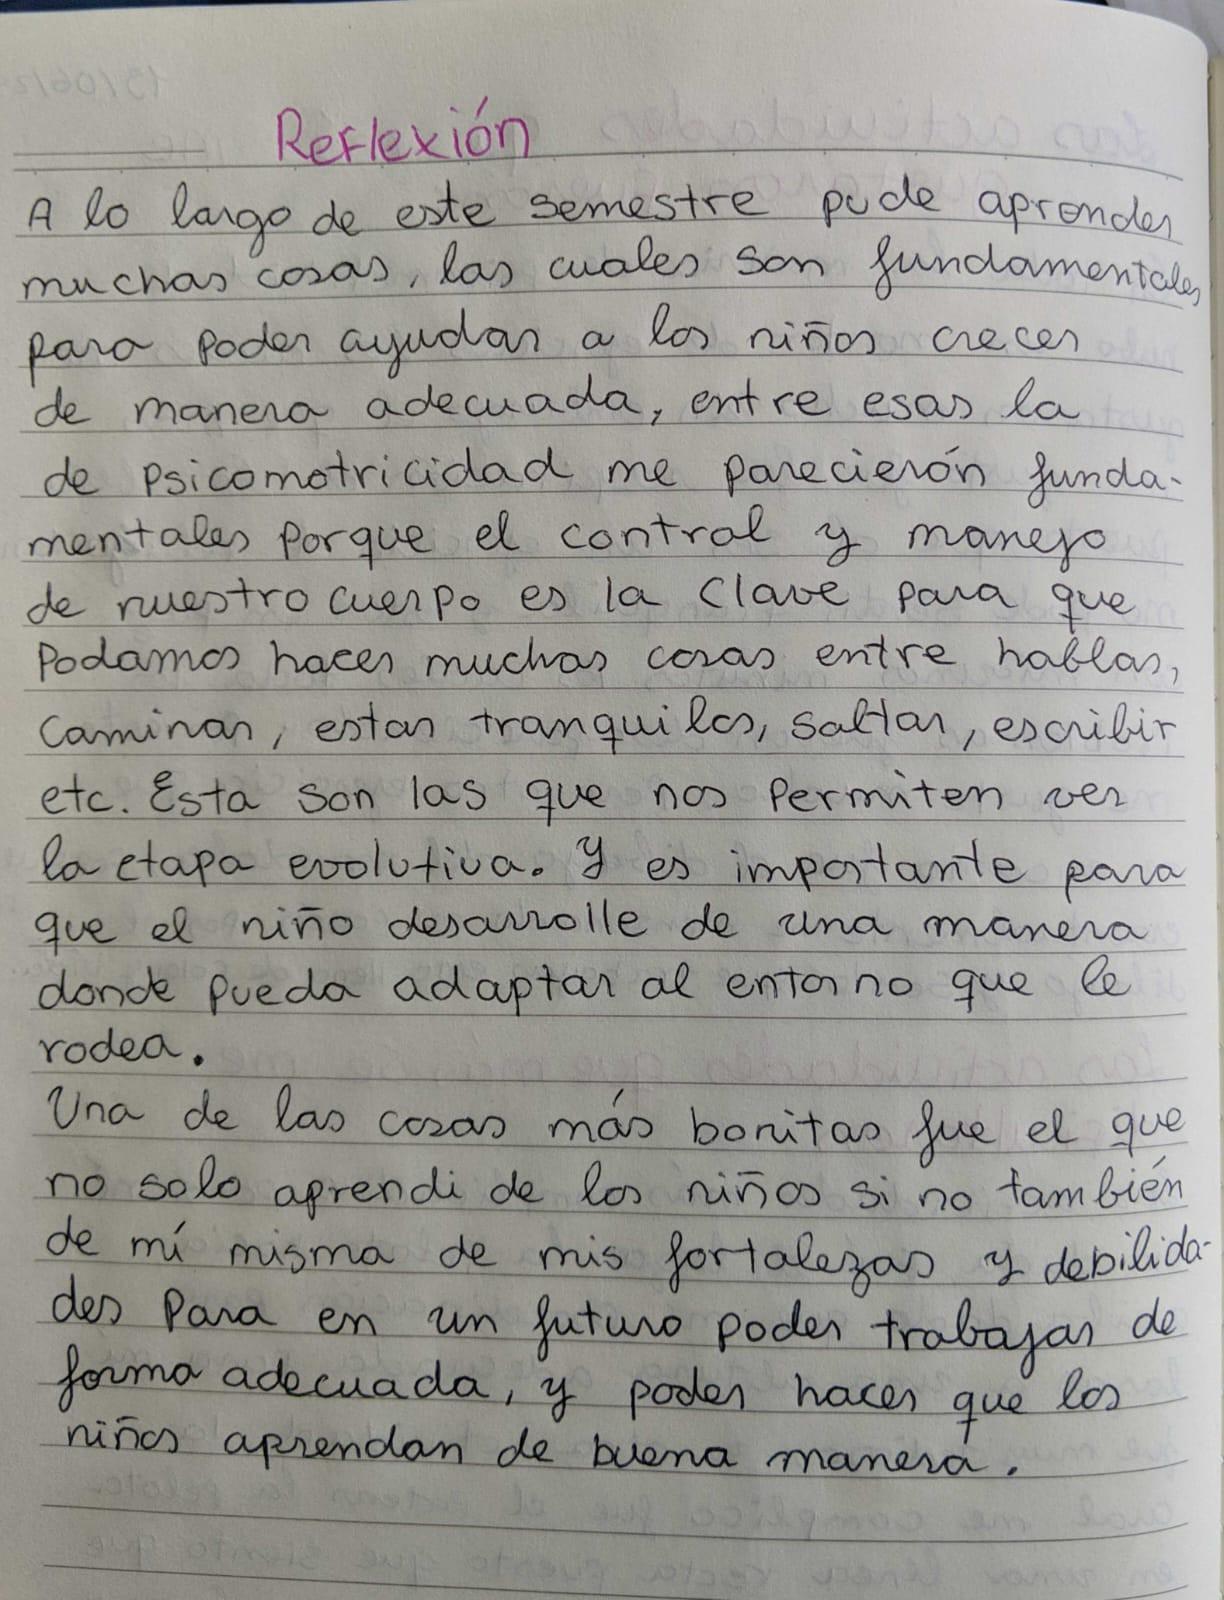 Reflexión
A lo largo de este semestre pude aprender
muchas cosas, las cuales son fundamentales
para poder ayudar a los niños crecer
de manera adecuada, entre esas la
de psicomotricidad me parecierón funda-
mentales porque el control y manejo
de nuestro cuerpo es la clave para que
Podamos hacer muchas cosas entre hablar,
Caminar, estar tranquilos, saltar, escribir
etc. Esta son las que nos Permiten ver
la etapa evolutiva. Y es importante para
que el niño desarrolle de una manera
donde pueda adaptar al entorno que le
rodea.
Una de las cosas más bonitas fue el que
no solo aprendi de los niños si no también
de mí misma de mis fortalezas y debilida-
des Para en un futuro poder trabajar de
forma adecuada, y poder hacer que los
niños aprendan de buena manera.